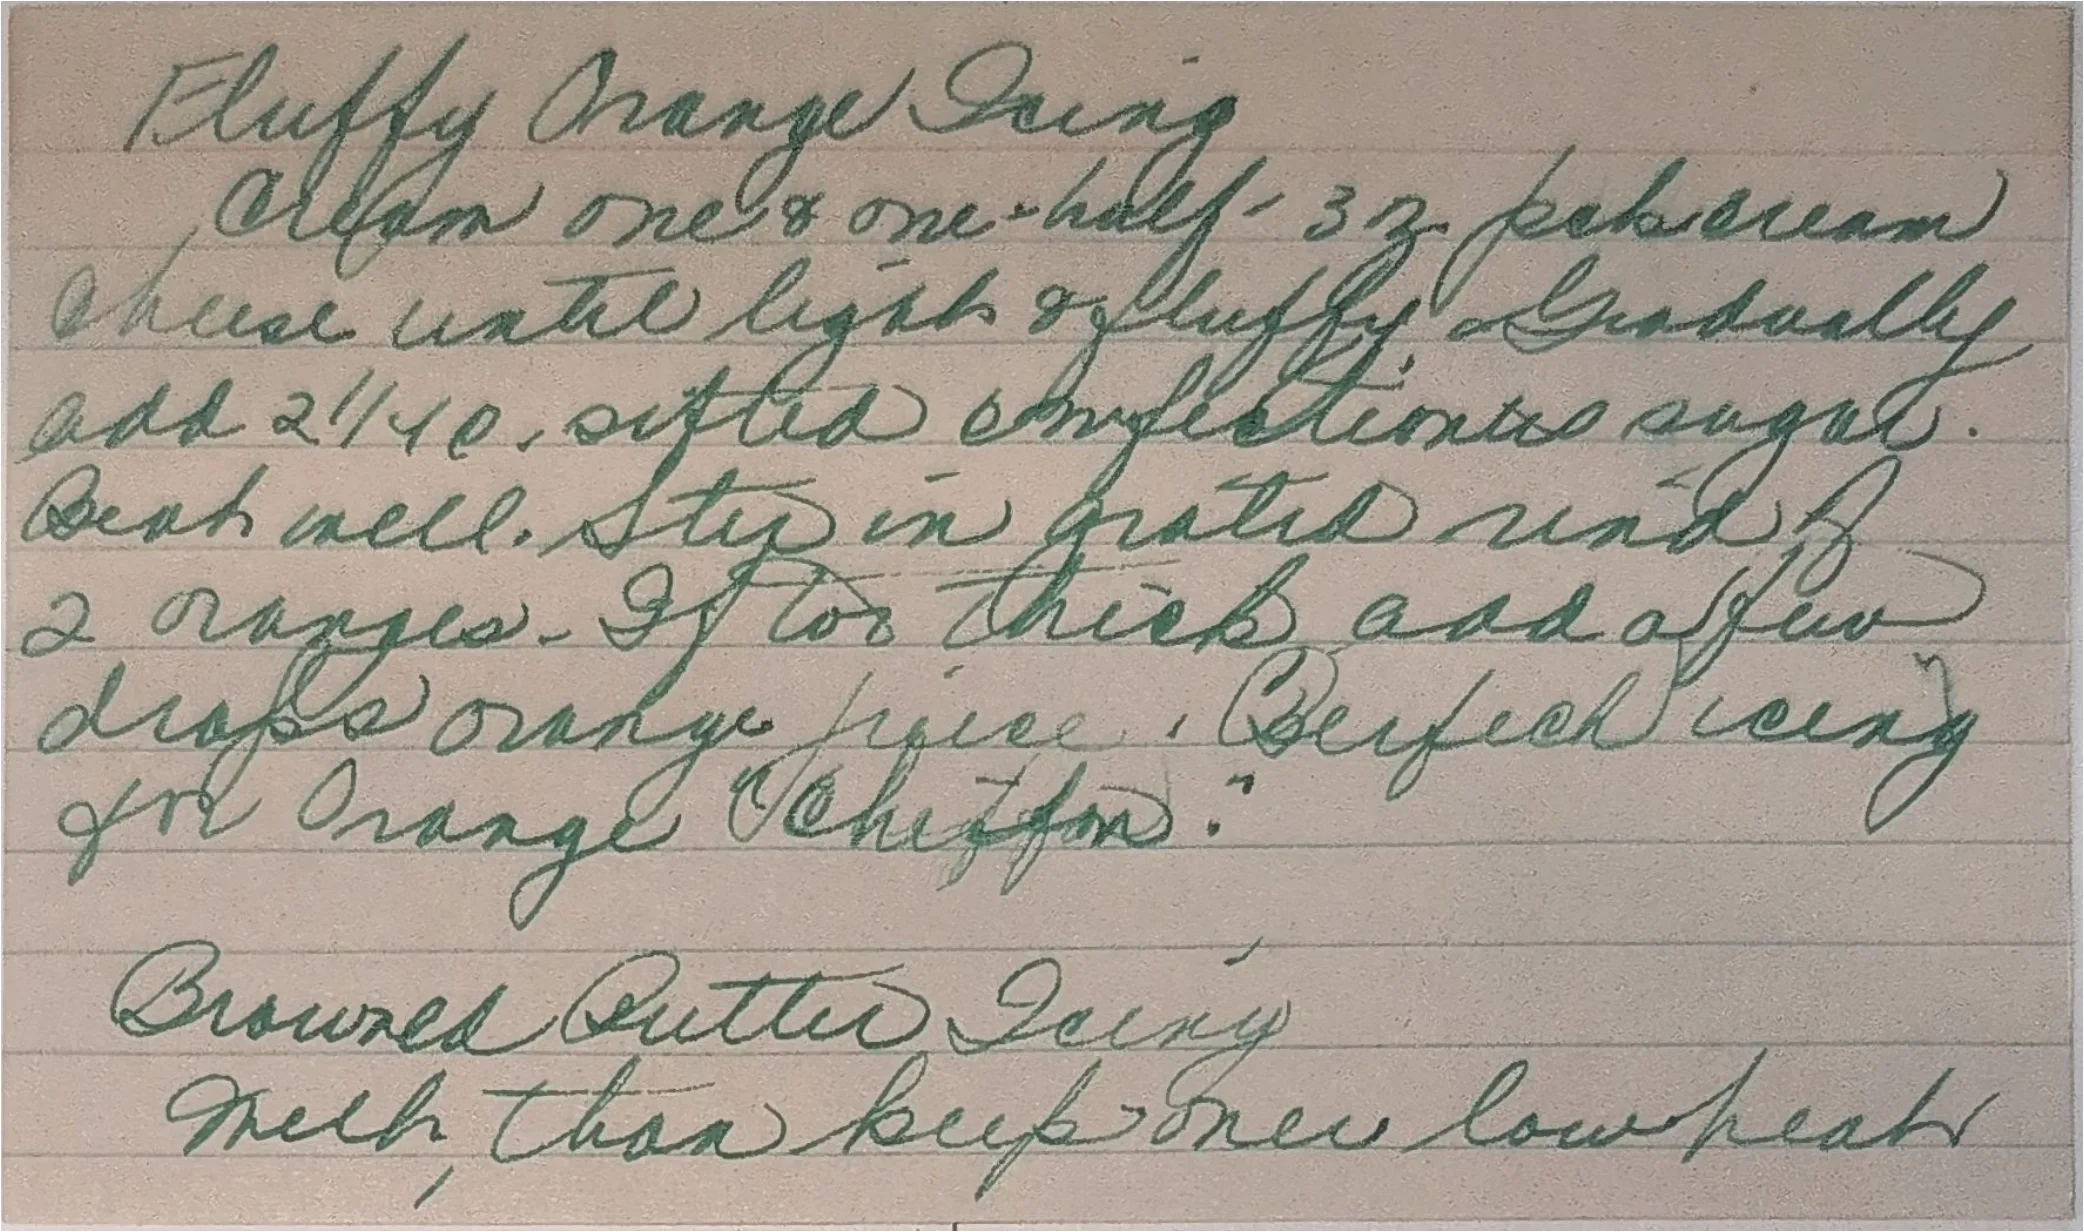 Fluffy Orange Icing
Cream one & one-half - 3 oz pck cream
cheese until light & fluffy. Gradually
add 2 1/4 c. sifted confectioners sugar.
Beat well. Stir in grated rind of
2 oranges. If too thick add a few
drops orange juice. (Perfect icing
for Orange "Chiffon".
Browned Butter Icing
Melt, than keep over low heat